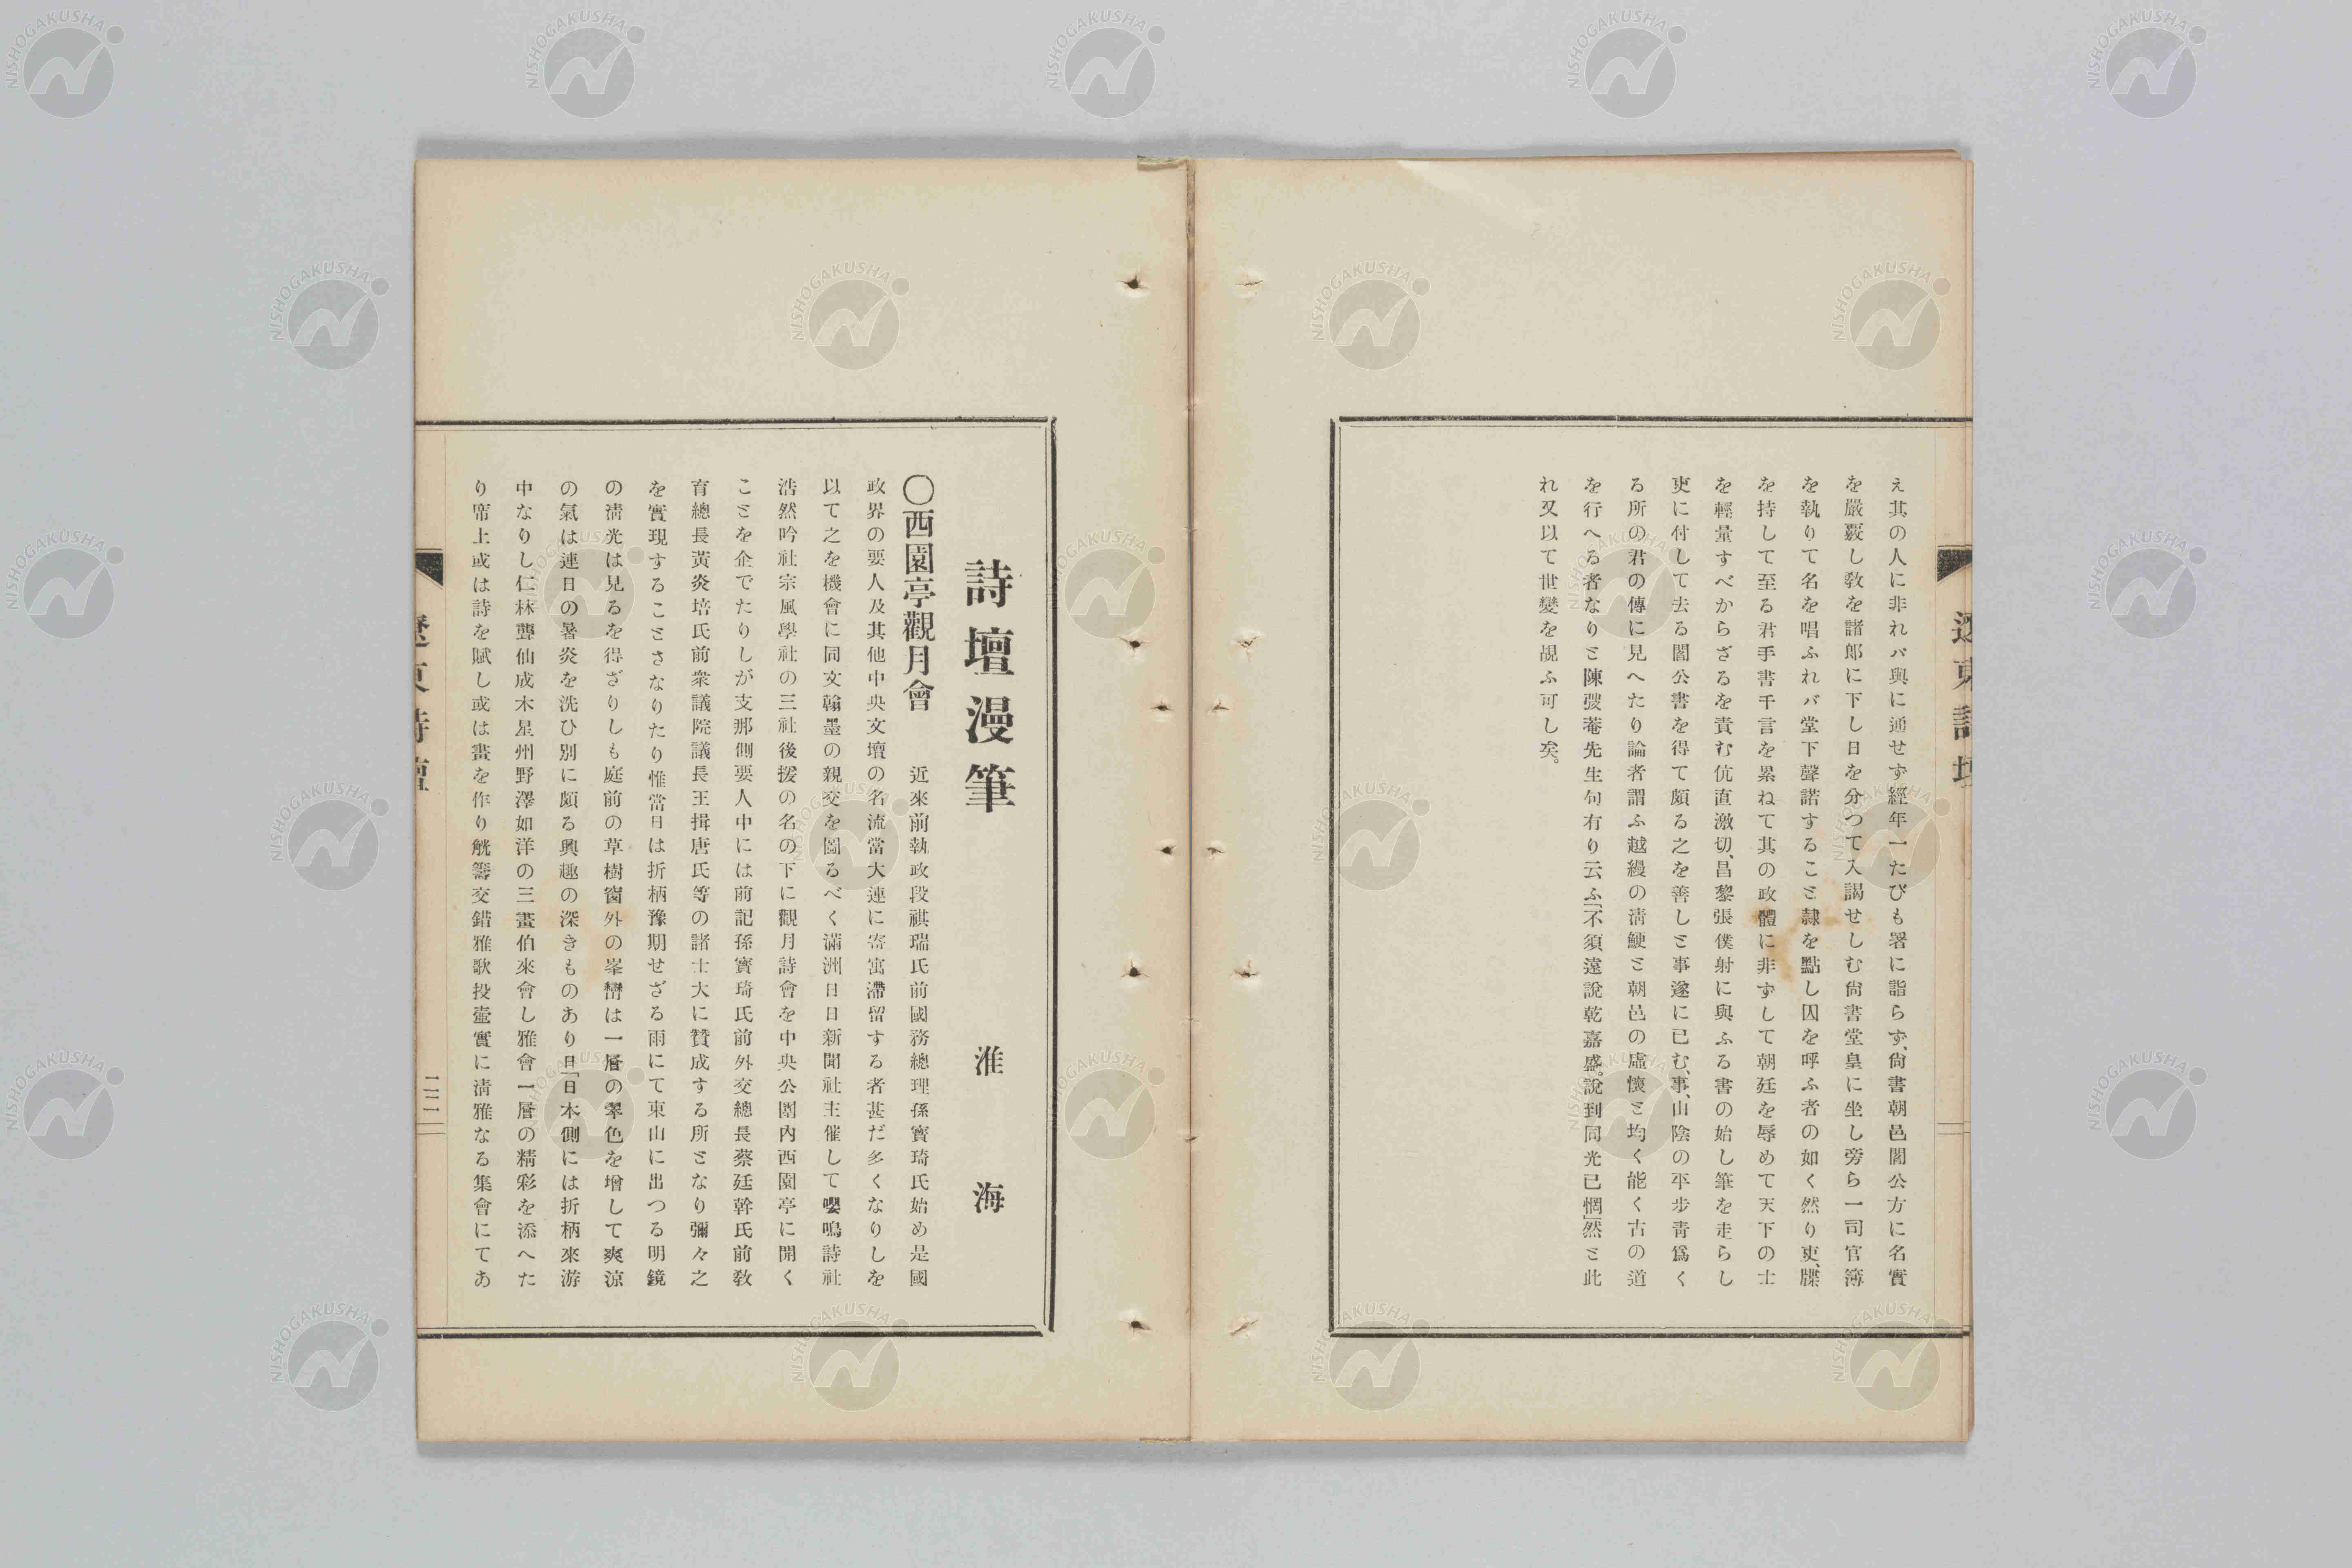 え其の人に非れバ與に通せず經年一たびも署に詣らず、尙書朝邑閻公方に名實
を嚴覈し敎を諸郞に下し日を分つて入謁せしむ尙書堂皇に坐し旁ら一司官簿
を執りて名を唱ふれバ堂下聲諾することゝ隷を點し囚を呼ふ者の如く然り吏、牒
を持して至る君手書千言を累ねて其の政體に非ずして朝廷を辱めて天下の士
を輕量すべからざるを責む伉直激切、昌黎張僕射に與ふる書の始し筆を走らし
吏に付して去る閻公書を得て頗る之を善しと事遂に已む、事、山陰の平步靑爲く
る所の君の傳に見へたり論者謂ふ越縵の淸鯁と朝邑の虛懷と均く能く古の道
を行へる者なりと陳弢菴先生句有り云ふ「不須遠說乾嘉盛。說到同光已惘」然と此
れ又以て世變を覘ふ可し矣。
詩壇漫筆
淮海
〇西園亭觀月會 近來前執政段祺瑞氏前國務總理孫寶琦氏始め是國
政界の要人及其他中央文壇の名流當大連に寄寓滯留する者甚だ多くなりしを
以て之を機會に同文翰墨の親交を圖るべく滿洲日日新聞社主催して嚶鳴詩社
浩然吟社宗風學社の三社後援の名の下に觀月詩會を中央公園內西園亭に開く
ことを企でたりしが支那側要人中には前記孫寶琦氏前外交總長蔡廷幹氏前敎
育總長黃炎培氏前衆議院議長王揖唐氏等の諸士大に贊成する所となり彌々之
を實現することさなりたり惟當日は折柄豫期せざる雨にて東山に出つる明鏡
の淸光は見るを得ざりしも庭前の草樹窗外の峯巒は一層の翠色を增して爽涼
の氣は連日の暑炎を洗ひ別に頗る興趣の深きものあり且「日本側には折柄來游
中なりし仁林聾仙成木星州野澤如洋の三畫伯來會し雅會一層の精彩を添へた
り席上或は詩を賦し或は畫を作り觥籌交錯雅歌投壺實に淸雅なる集會にてあ
遼東詩壇
二二
遼東詩壇